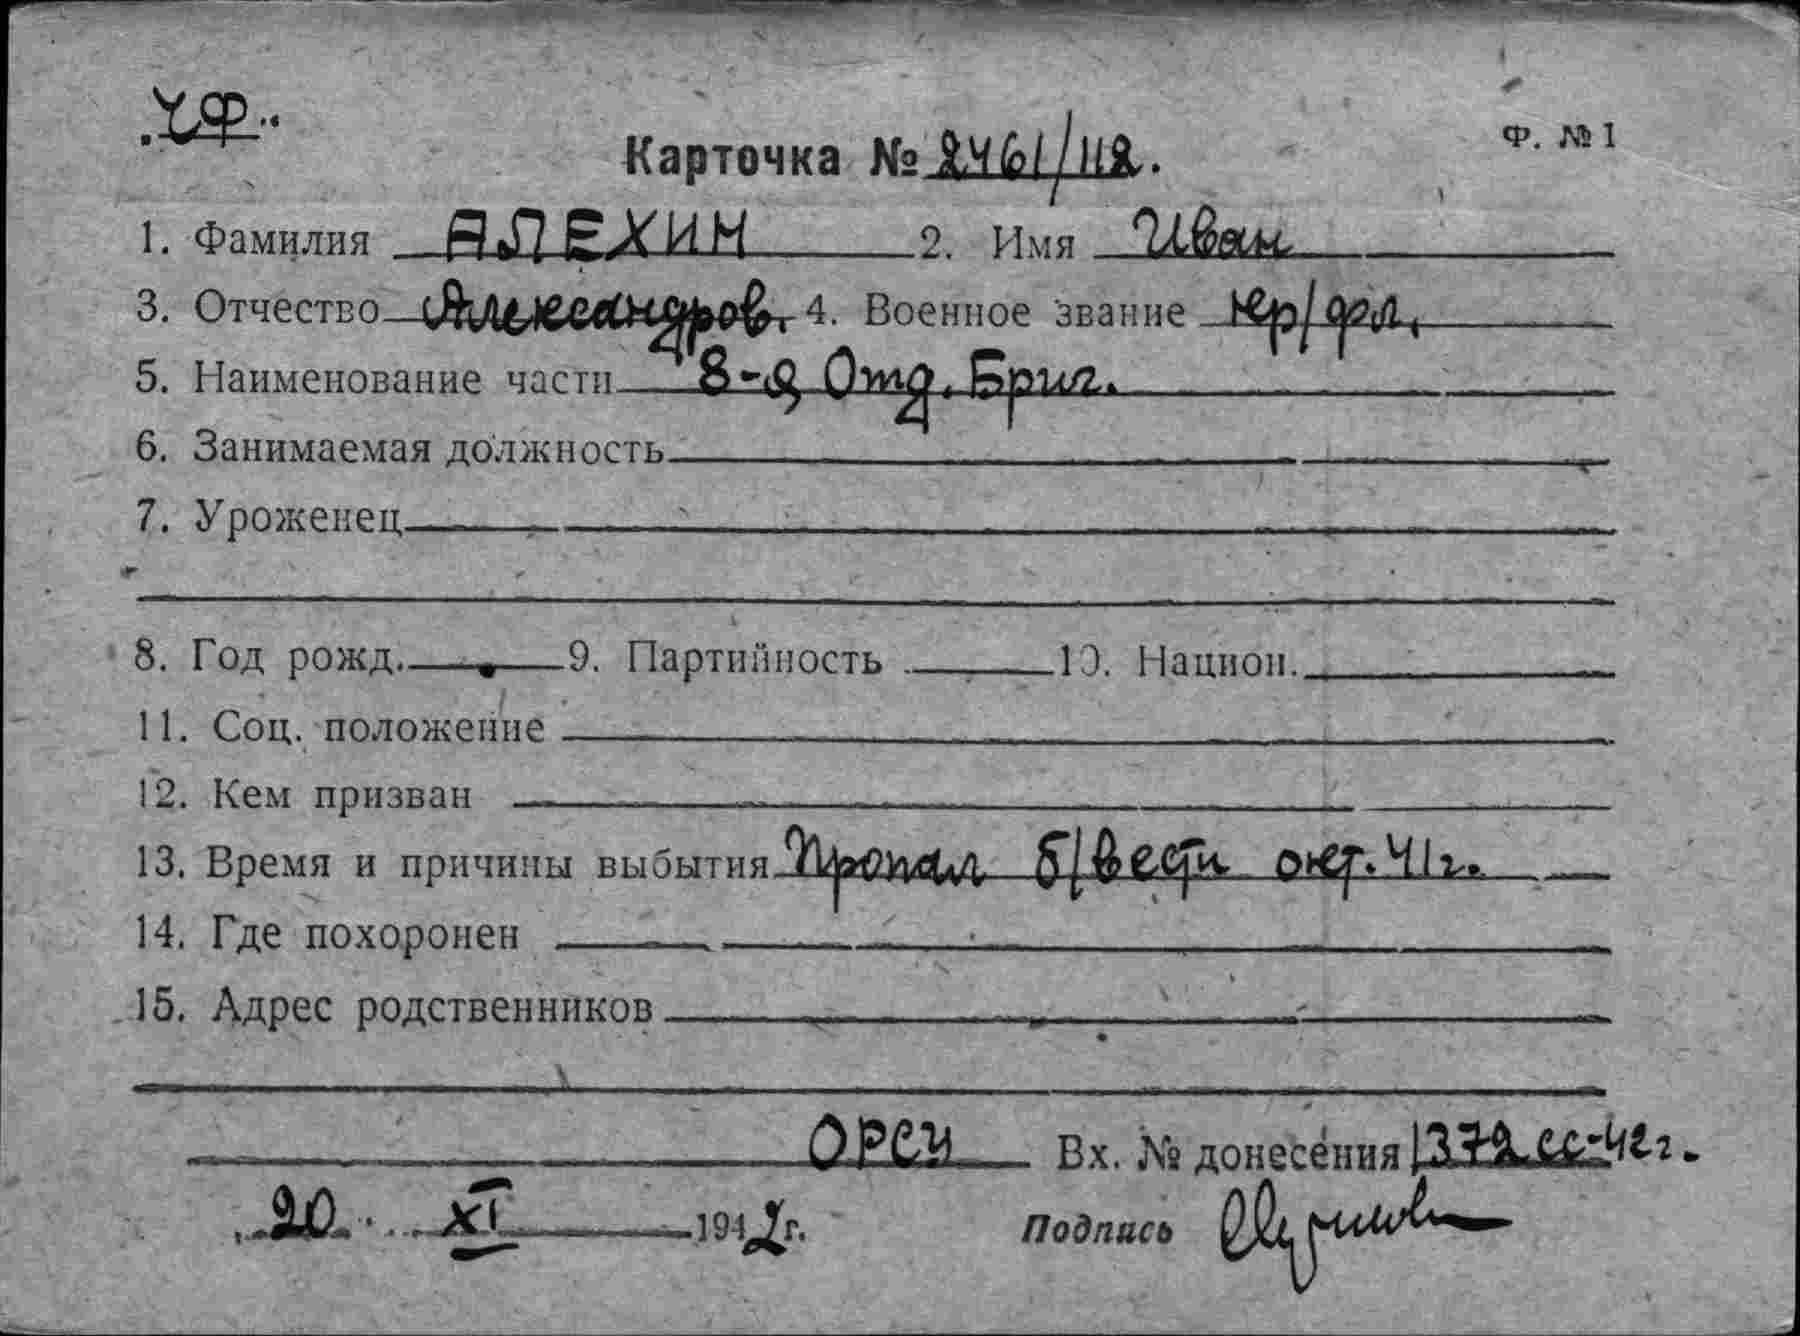 ЧФ.
Ф. №1
Карточка № 2461/112.
1. Фамилия АЛЕХИН 2. Имя Иван
3. Отчество Александров. 4. Военное звание кр/фл.
5. Наименование части 8-я Отд. Бриг.
6. Занимаемая должность
7. Уроженец
8. Год рожд. 9. Партийность 10. Национ.
11. Соц. положение
12. Кем призван
13. Время и причины выбытия Пропал б/вести окт. 41г.
14. Где похоронен
15. Адрес родственников
ОРСУ Вх. № донесения 1372сс-42г.
20 XI 1942г. Подпись